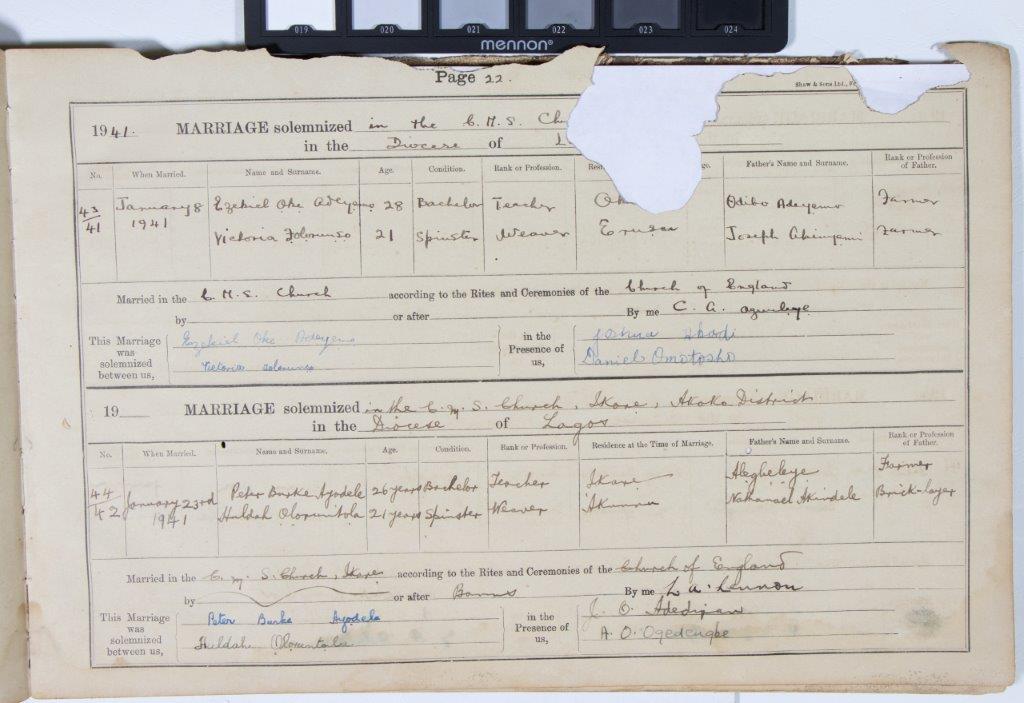 019 020 021 022 023 024
mennon®
Page 22.
Shaw & Sons Ltd.,
1941. MARRIAGE solemnized in the C. M. S.
in the Diocese of
No. When Married. Name and Surname. Age. Condition. Rank or Profession. Father's Name and Surname. Rank or Profession of Father.
43/41 January 8 1941 Ezekiel Oke Adeyemo 28 Bachelor Teacher Odibo Adeyemo Farmer
Victoria Folorunso 21 Spinster Weaver Erusu Joseph Akinyemi Farmer
Married in the C. M. S. Church according to the Rites and Ceremonies of the Church of England
by or after By me C. A.
This Marriage was solemnized between us, Ezekiel Oke Adeyemo in the Presence of us, Joshua
Victoria Folorunso Daniel Omotosho
19 MARRIAGE solemnized in the C. M. S. Church, Ikare, Akoko District
in the Diocese of Lagos
No. When Married. Name and Surname. Age. Condition. Rank or Profession. Residence at the Time of Marriage. Father's Name and Surname. Rank or Profession of Father.
44/42 January 23rd 1941 Peter Burke Ayodele 26 years Bachelor Teacher Ikare Alegbeleye Farmer
Huldah Oloruntola 21 years Spinster Weaver Ikunnu Nathanael Akindele Brick-layer
Married in the C. M. S. Church, Ikare according to the Rites and Ceremonies of the Church of England
by or after Banns By me L. A. Lennon
This Marriage was solemnized between us, Peter Burke Ayodele in the Presence of us, J. O.
Huldah Oloruntola A. O. Ogedengbe